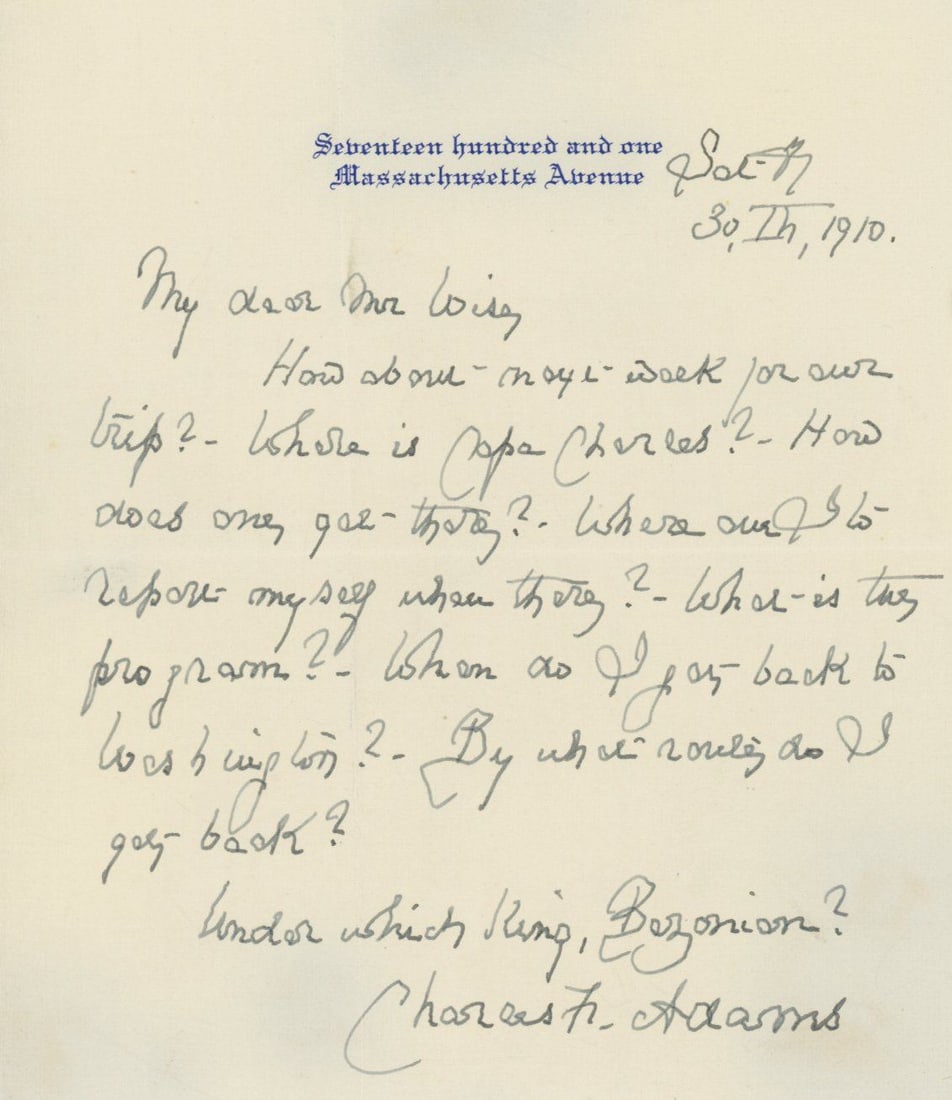 Seventeen hundred and one
Massachusetts Avenue
Sat-y
30, IV, 1910.
My dear Mr Wise,
How about next week for our
trip? - Where is Cape Charles? - How
does one get there? - Where am I to
report myself when there? - What is the
program? - When do I get back to
Washington? - By what route do I
get back?
Under which King, Bezonian?
Charles F. Adams